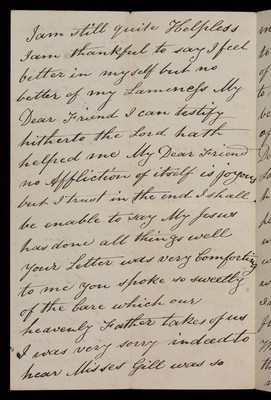 I am still quite Helpless
I am thankful to say I feel
better in myself but no
better of my Lameness My
Dear Friend I can testify
hitherto the Lord hath
helped me My Dear Friend
no Affliction of itself is joyous
but I trust in the end I shall
be enable to say My Jesus
has done all things well
your Letter was very Comforting
to me you spoke so sweetly
of the Care which our
heavenly Father takes of us
I was very sorry indeed to
hear Misses Gill was so